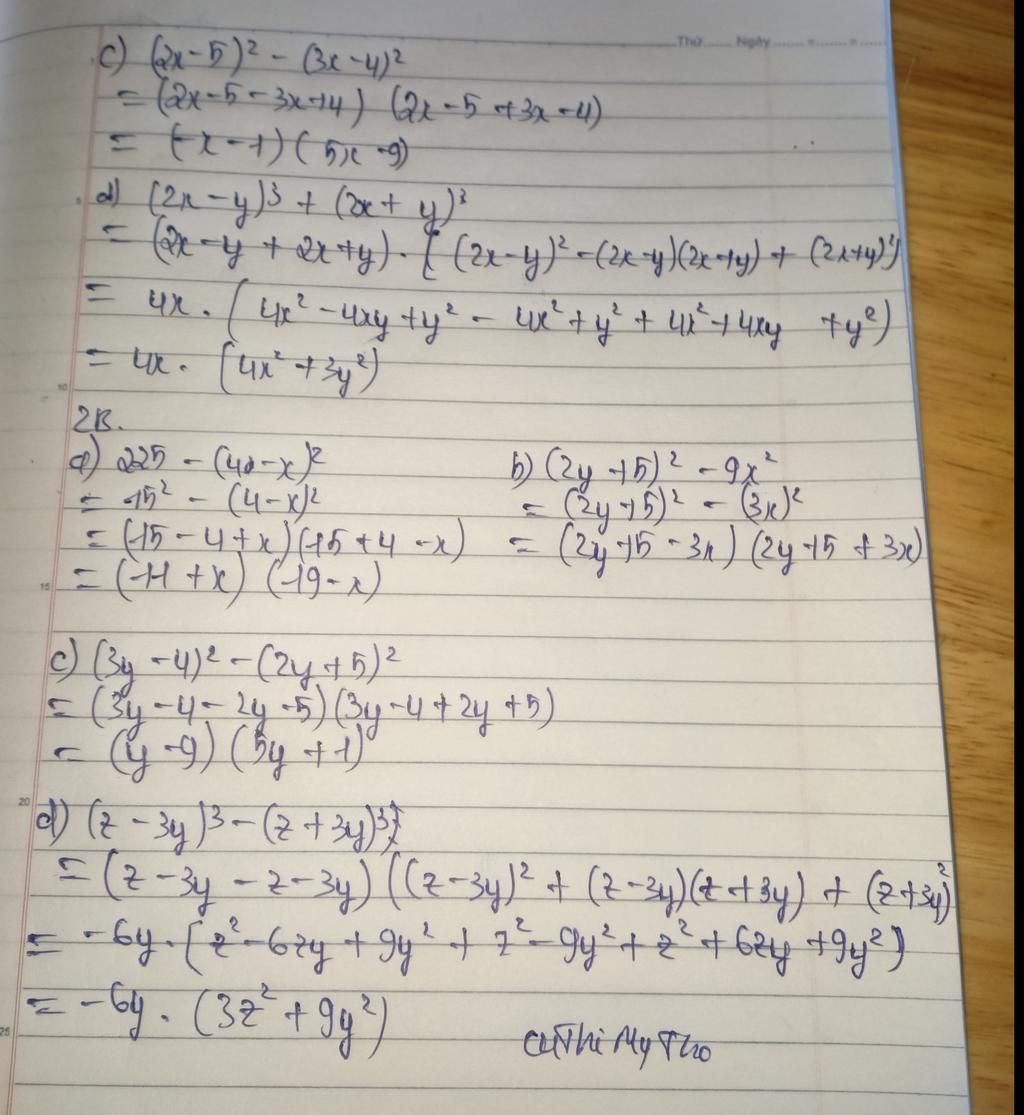 Thứ ...... Ngày ...... - ...... - ......
c) (2x-5)² - (3x-4)²
= (2x-5-3x+4) (2x-5+3x-4)
= (-x-1)(5x-9)
d) (2x-y)³ + (2x+y)³
= (2x-y+2x+y).[(2x-y)²-(2x-y)(2x+y)+(2x+y)²)
= 4x.(4x²-4xy+y²-4x²+y²+4x²+4xy+y²)
= 4x.(4x²+3y²)
10
2B.
a) 225 - (4-x)²
= 15² - (4-x)²
= (15-4+x)(15+4-x)
= (11+x)(19-x)
b) (2y+5)² - 9x²
= (2y+5)² - (3x)²
= (2y+5-3x)(2y+5+3x)
15
c) (3y-4)² - (2y+5)²
= (3y-4-2y-5)(3y-4+2y+5)
= (y-9)(5y+1)
20
d) (z-3y)³ - (z+3y)³
= (z-3y-z-3y)((z-3y)²+(z-3y)(z+3y)+(z+3y)²
= -6y.(z²-6zy+9y²+z²-9y²+z²+6zy+9y²)
= -6y.(3z²+9y²)
25